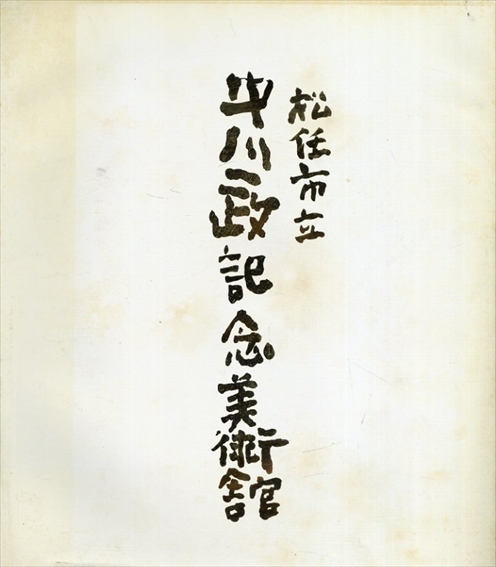 松任市立
中川一政記念美術舘